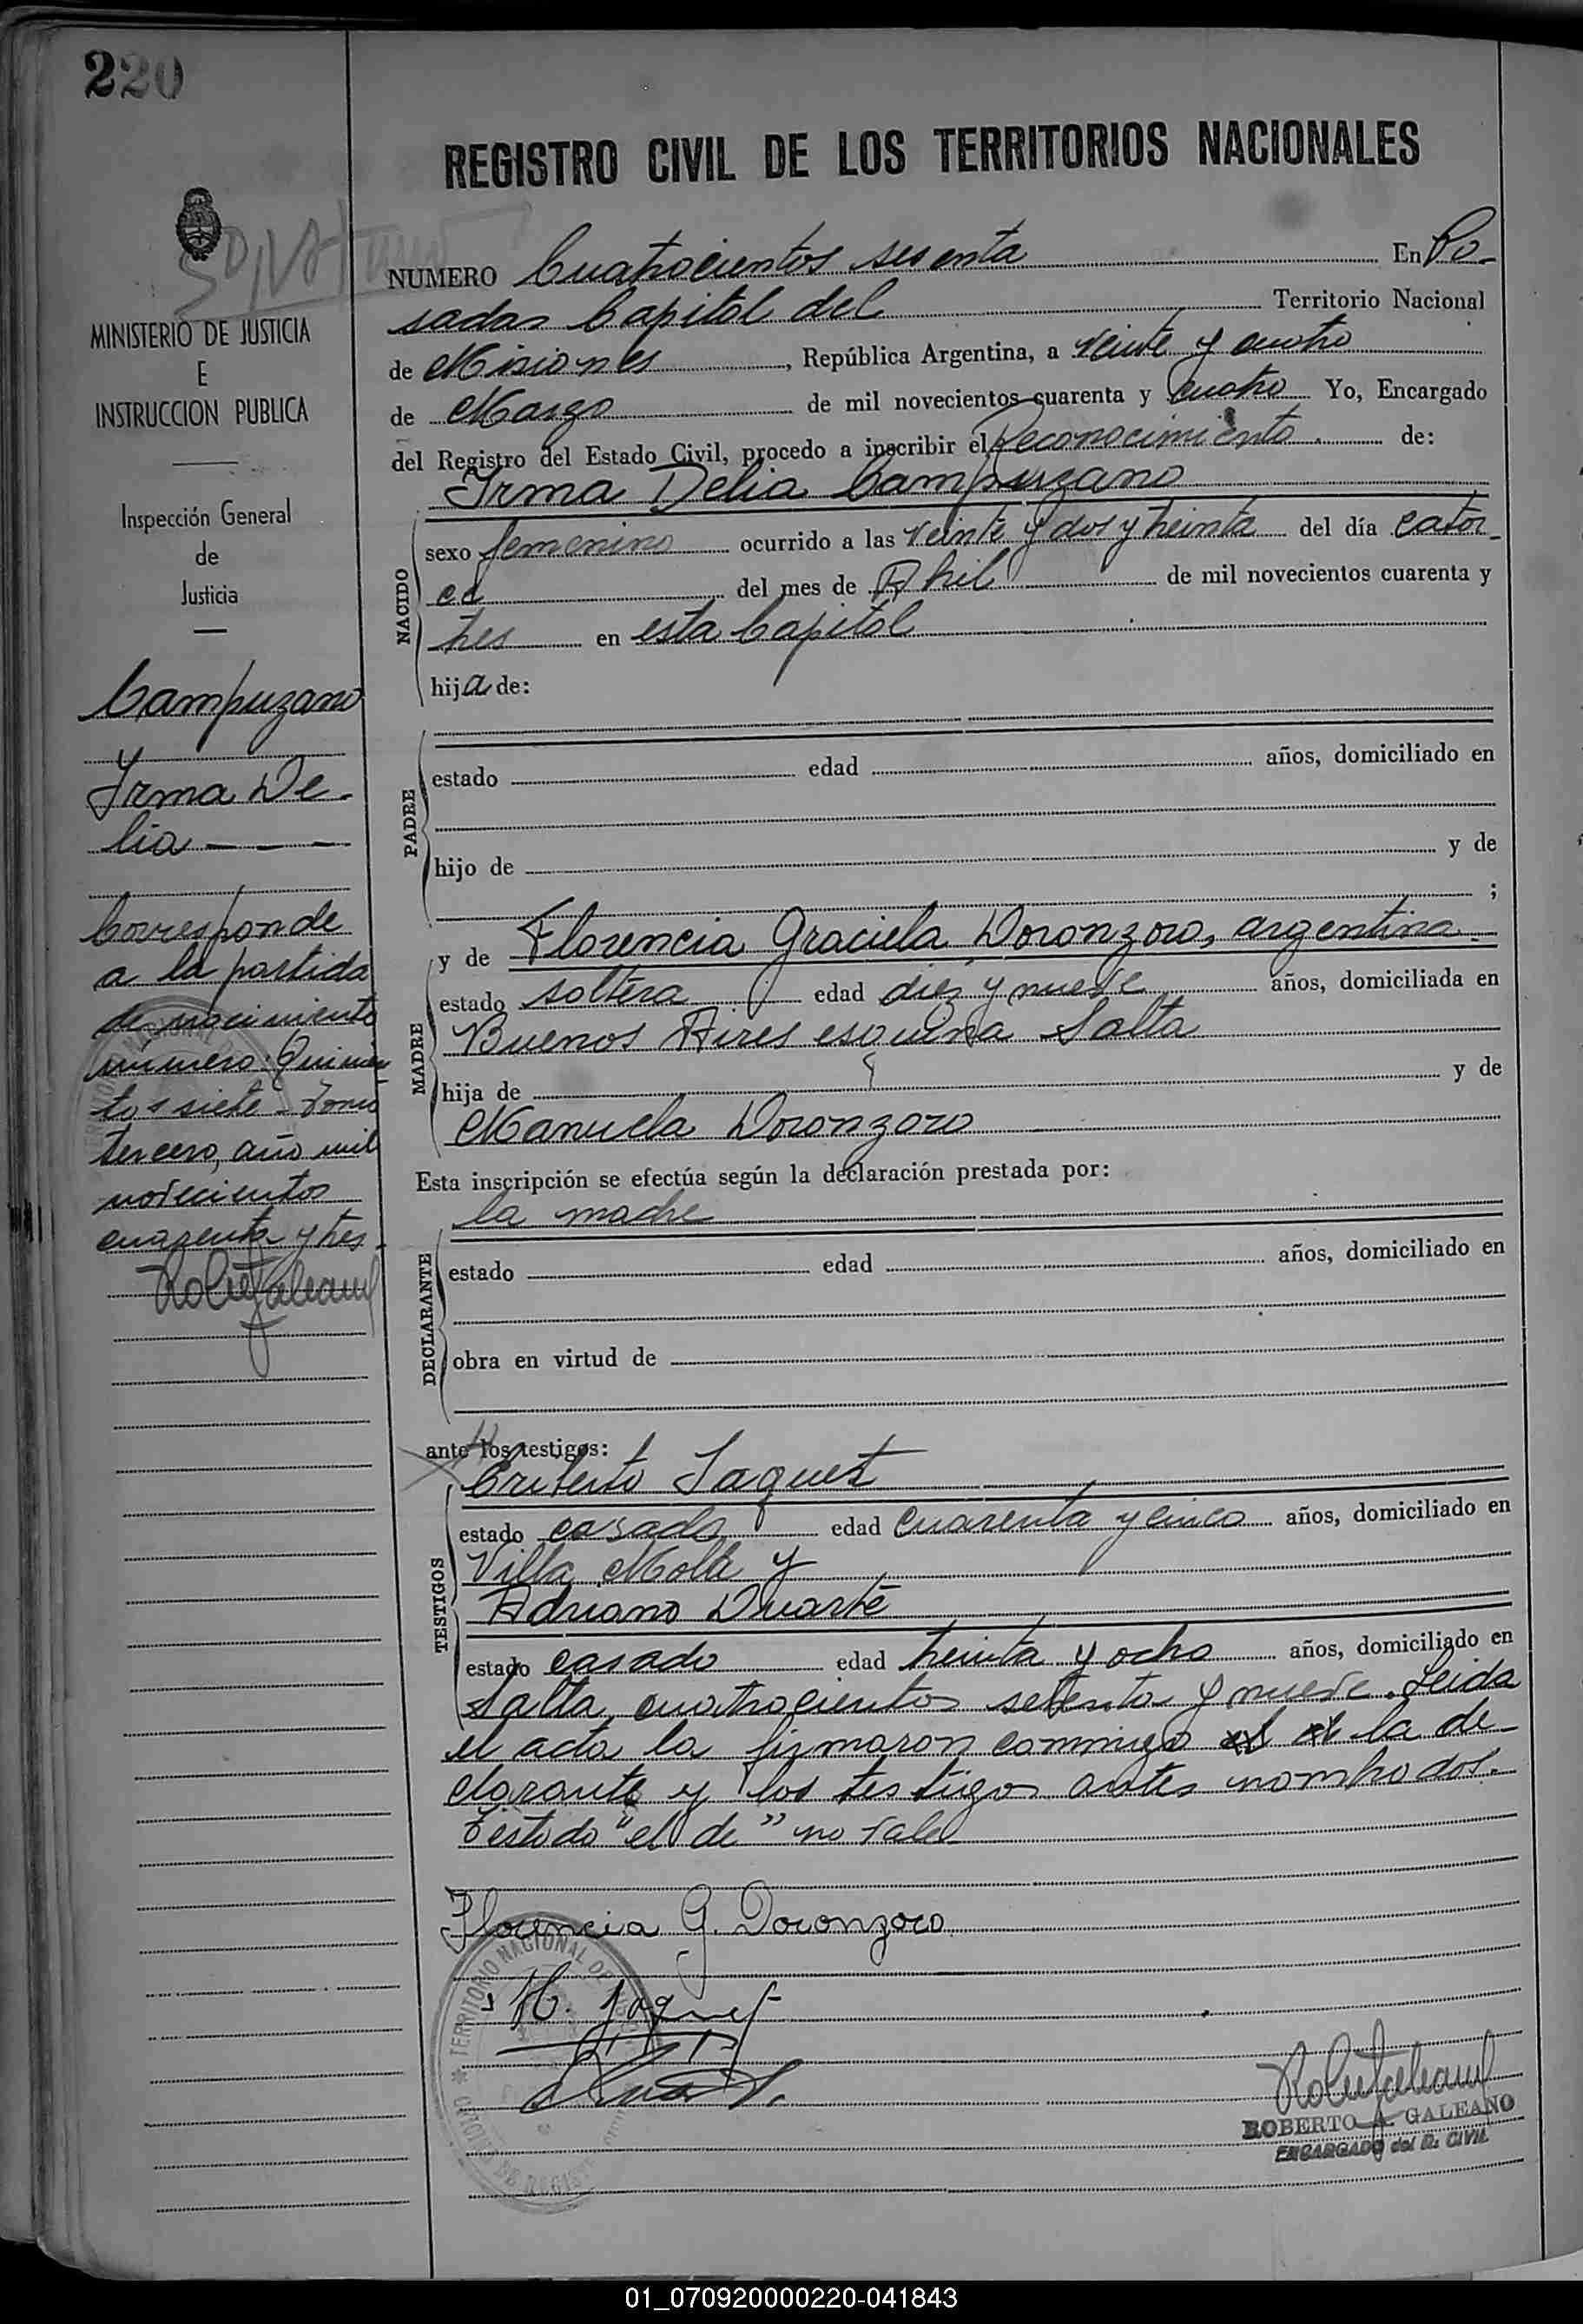 220
REGISTRO CIVIL DE LOS TERRITORIOS NACIONALES
MINISTERIO DE JUSTICIA
E
INSTRUCCION PUBLICA
Inspección General
de
Justicia
Campuzano
Irma De-
lia
Corresponde
a la partida
de nacimiento
número: Quinien-
tos siete - Tomo
tercero, año mil
novecientos
cuarenta y tres.
NUMERO Cuatrocientos sesenta En Po-
sadas Capital del Territorio Nacional
de Misiones, República Argentina, a veinte y cuatro
de Marzo de mil novecientos cuarenta y cuatro Yo, Encargado
del Registro del Estado Civil, procedo a inscribir el Reconocimiento de:
Irma Delia Campuzano
NACIDO
sexo femenino ocurrido a las veinte y dos y treinta del día cator-
ce del mes de Abril de mil novecientos cuarenta y
tres en esta Capital
hija de:
PADRE
estado edad años, domiciliado en
hijo de y de
;
MADRE
y de Florencia Graciela Doronzoro, argentina
estado soltera edad diez y nueve años, domiciliada en
Buenos Aires esquina Salta
hija de y de
Manuela Doronzoro
Esta inscripción se efectúa según la declaración prestada por:
la madre
DECLARANTE
estado edad años, domiciliado en
obra en virtud de
ante los testigos:
TESTIGOS
Eriberto Jaquet
estado casado edad cuarenta y cinco años, domiciliado en
Villa Mola y
Adriano Duarte
estado casado edad treinta y ocho años, domiciliado en
Salta cuatrocientos setenta y nueve. Leida
el acta la firmaron conmigo el de la de-
clarante y los testigos antes nombrados.
Testado "el de" no vale
Florencia G. Doronzoro
H. Jaquet
ROBERTO A. GALEANO
ENCARGADO del R. CIVIL
01_070920000220-041843